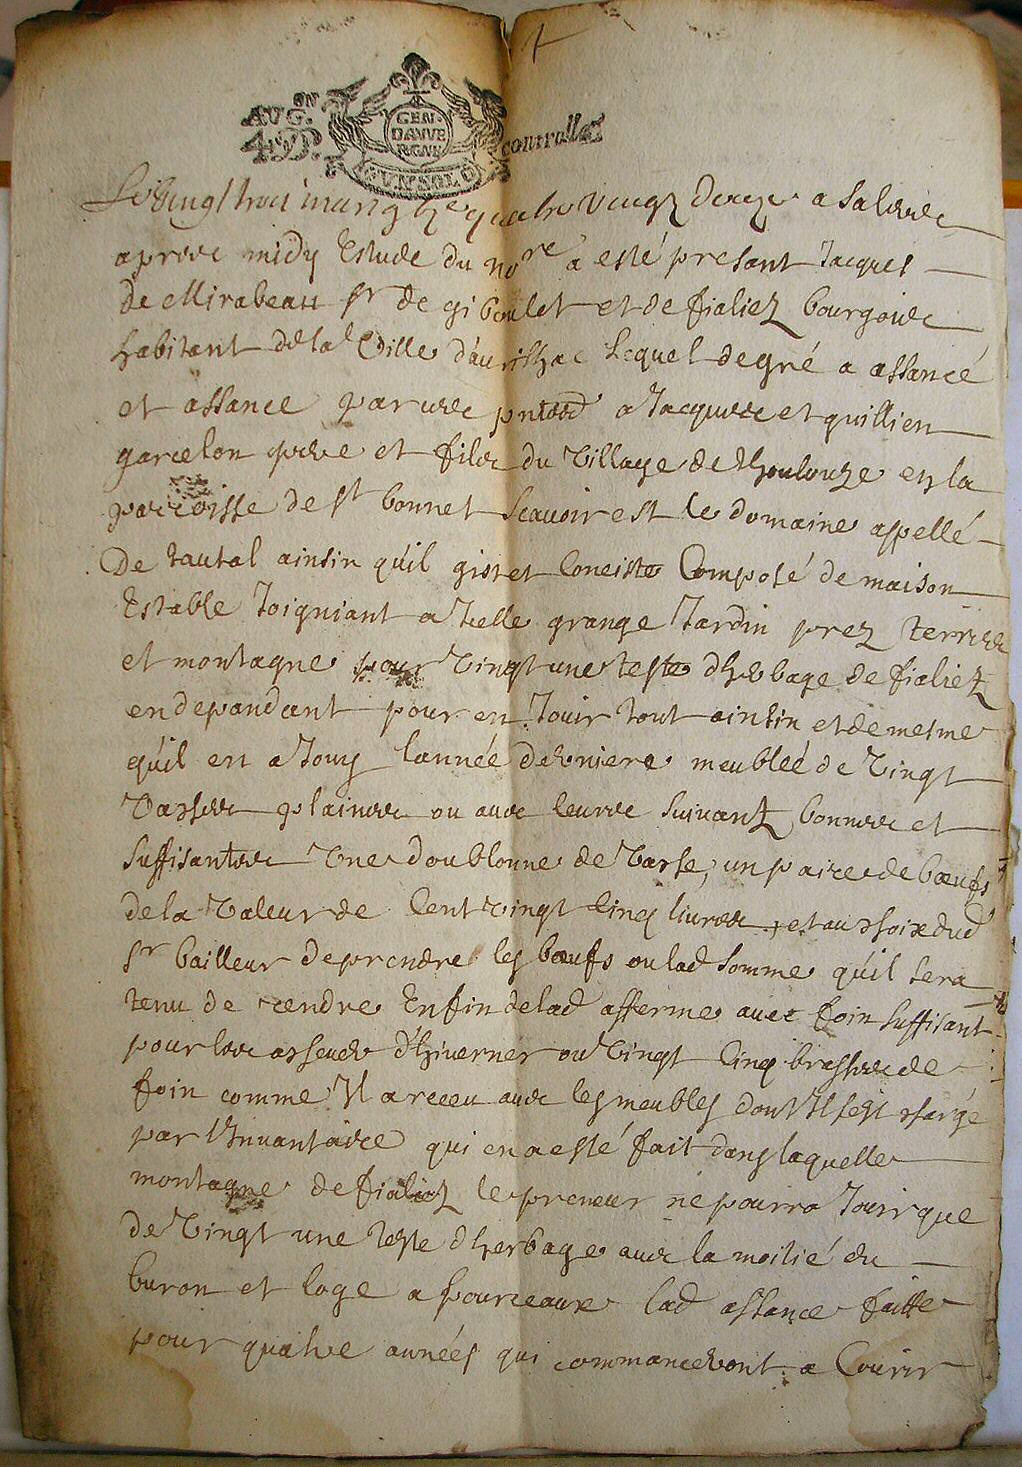 AUG.ON
4 D.
GEN.
DAUVE
RGNE
UN SOL
controllé
Le vingt trois mars g bc quatre vingt douze a salerc
apres midy Estude du nore a esté presant Jacques
De Mirabeau sr de giboulet et de fialiez bourgois
habitant de la Ville d'aurilhac lequel de gré a assancé
et assance par ces pntes a Jacques et guillien
garcelon pere et fils du Village de Thoulouze en la
parroisse de st bonnet scavoir est le domaine appellé
De tautal ainsin qu'il gist et Conciste Composé de maison
Estable Joigniant a Icelle grange Jardin prez terres
et montagne pour Vingt une teste d'herbage de fialiez
en depandant pour en Jouir tout ainsin et de mesme
qu'il en a Jouy l'année derniere meublée de Vingt
Vasses plaines ou avec leurs suivantz bonnes et
suffisantes Une doublonne de Vasse, un paire de bœufs
de la Valeur de Cent vingt Cinq livres, et au choix dud
sr bailleur de prendre les bœufs ou lad somme qu'il sera
tenu de rendre En fin de lad afferme avec foin suffisant
pour les d'hiverner ou Vingt Cinq brasses de
foin comme Il a receu avec les meubles dont Il s'est chargé
par l'Invantaire qui en a esté fait dans laquelle
montagne de fialiez le preneur ne pourra Jouir que
de Vingt une teste d'herbage avec la moitié du
buron et loge a pourceaux lad assance faitte
pour quatre années qui commanceront a Courir